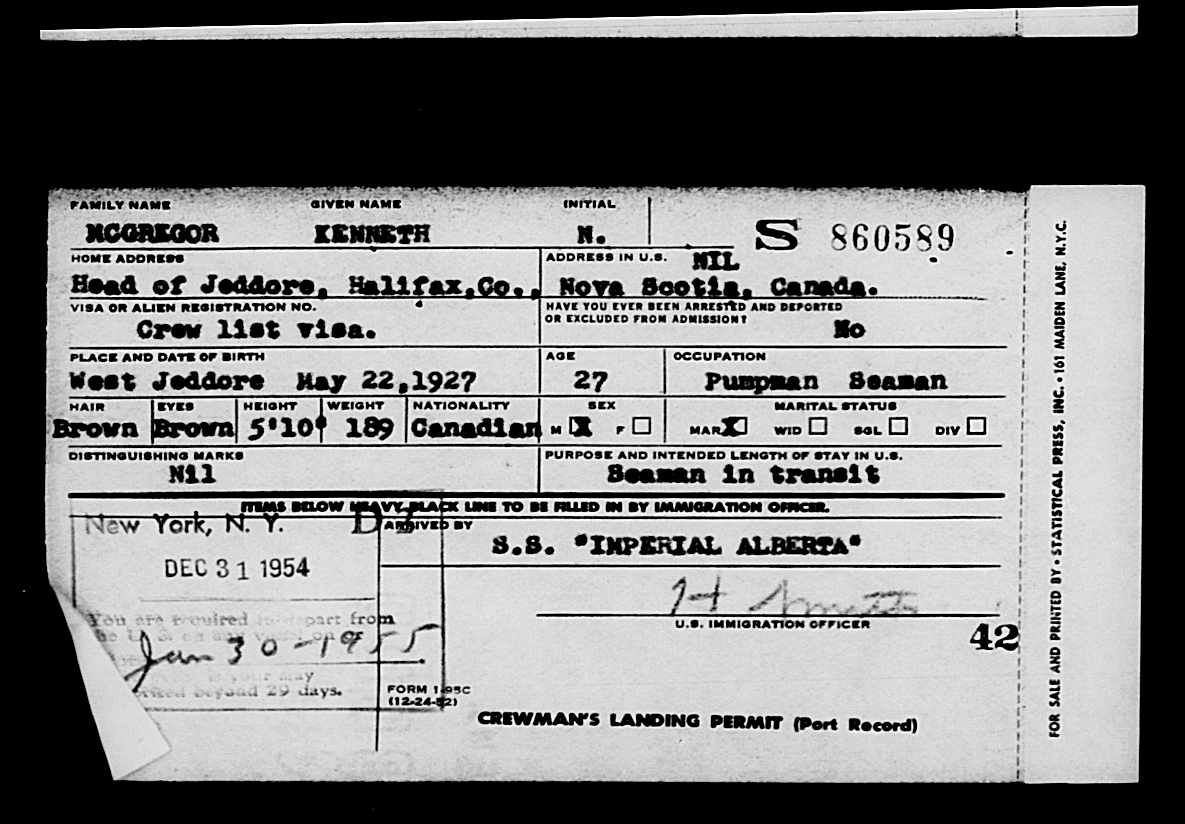 FAMILY NAME GIVEN NAME INITIAL
MCGREGOR KENNETH N. S 860589
HOME ADDRESS ADDRESS IN U.S. NIL
Head of Jeddore, Halifax,Co., Nova Scotia, Canada.
VISA OR ALIEN REGISTRATION NO. HAVE YOU EVER BEEN ARRESTED AND DEPORTED
OR EXCLUDED FROM ADMISSION?
Crew list visa. No
PLACE AND DATE OF BIRTH AGE OCCUPATION
West Jeddore May 22,1927 27 Pumpman Seaman
HAIR EYES HEIGHT WEIGHT NATIONALITY SEX MARITAL STATUS
Brown Brown 5'10" 189 Canadian M X F MAR X WID SGL DIV
DISTINGUISHING MARKS PURPOSE AND INTENDED LENGTH OF STAY IN U.S.
Nil Seaman in transit
ITEMS BELOW HEAVY BLACK LINE TO BE FILLED IN BY IMMIGRATION OFFICER.
New York, N. Y. ARRIVED BY
S.S. "IMPERIAL ALBERTA"
DEC 31 1954
You are required to depart from
Jan 30-1955
U.S. IMMIGRATION OFFICER
42
beyond 29 days.
FORM I-95C
(12-24-52)
CREWMAN'S LANDING PERMIT (Port Record)
FOR SALE AND PRINTED BY • STATISTICAL PRESS, INC. • 161 MAIDEN LANE, N.Y.C.